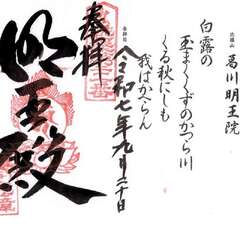 北嶺山
葛川 明王院
白露の
玉まくくずのかづら川
くる秋にしも
我はかへらん
奉拝
令和七年九月二十日
明王殿